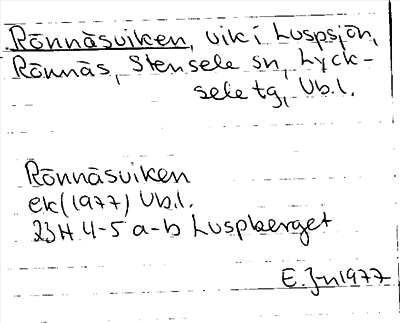 Rönnäsviken, vik i Luspsjön,
Rönnäs, Stensele sn, Lyck-
sele tg, Vb.l.
Rönnäsviken
ek (1977) Vb.l.
23H 4-5 a-b Luspberget
E. Jn 1977